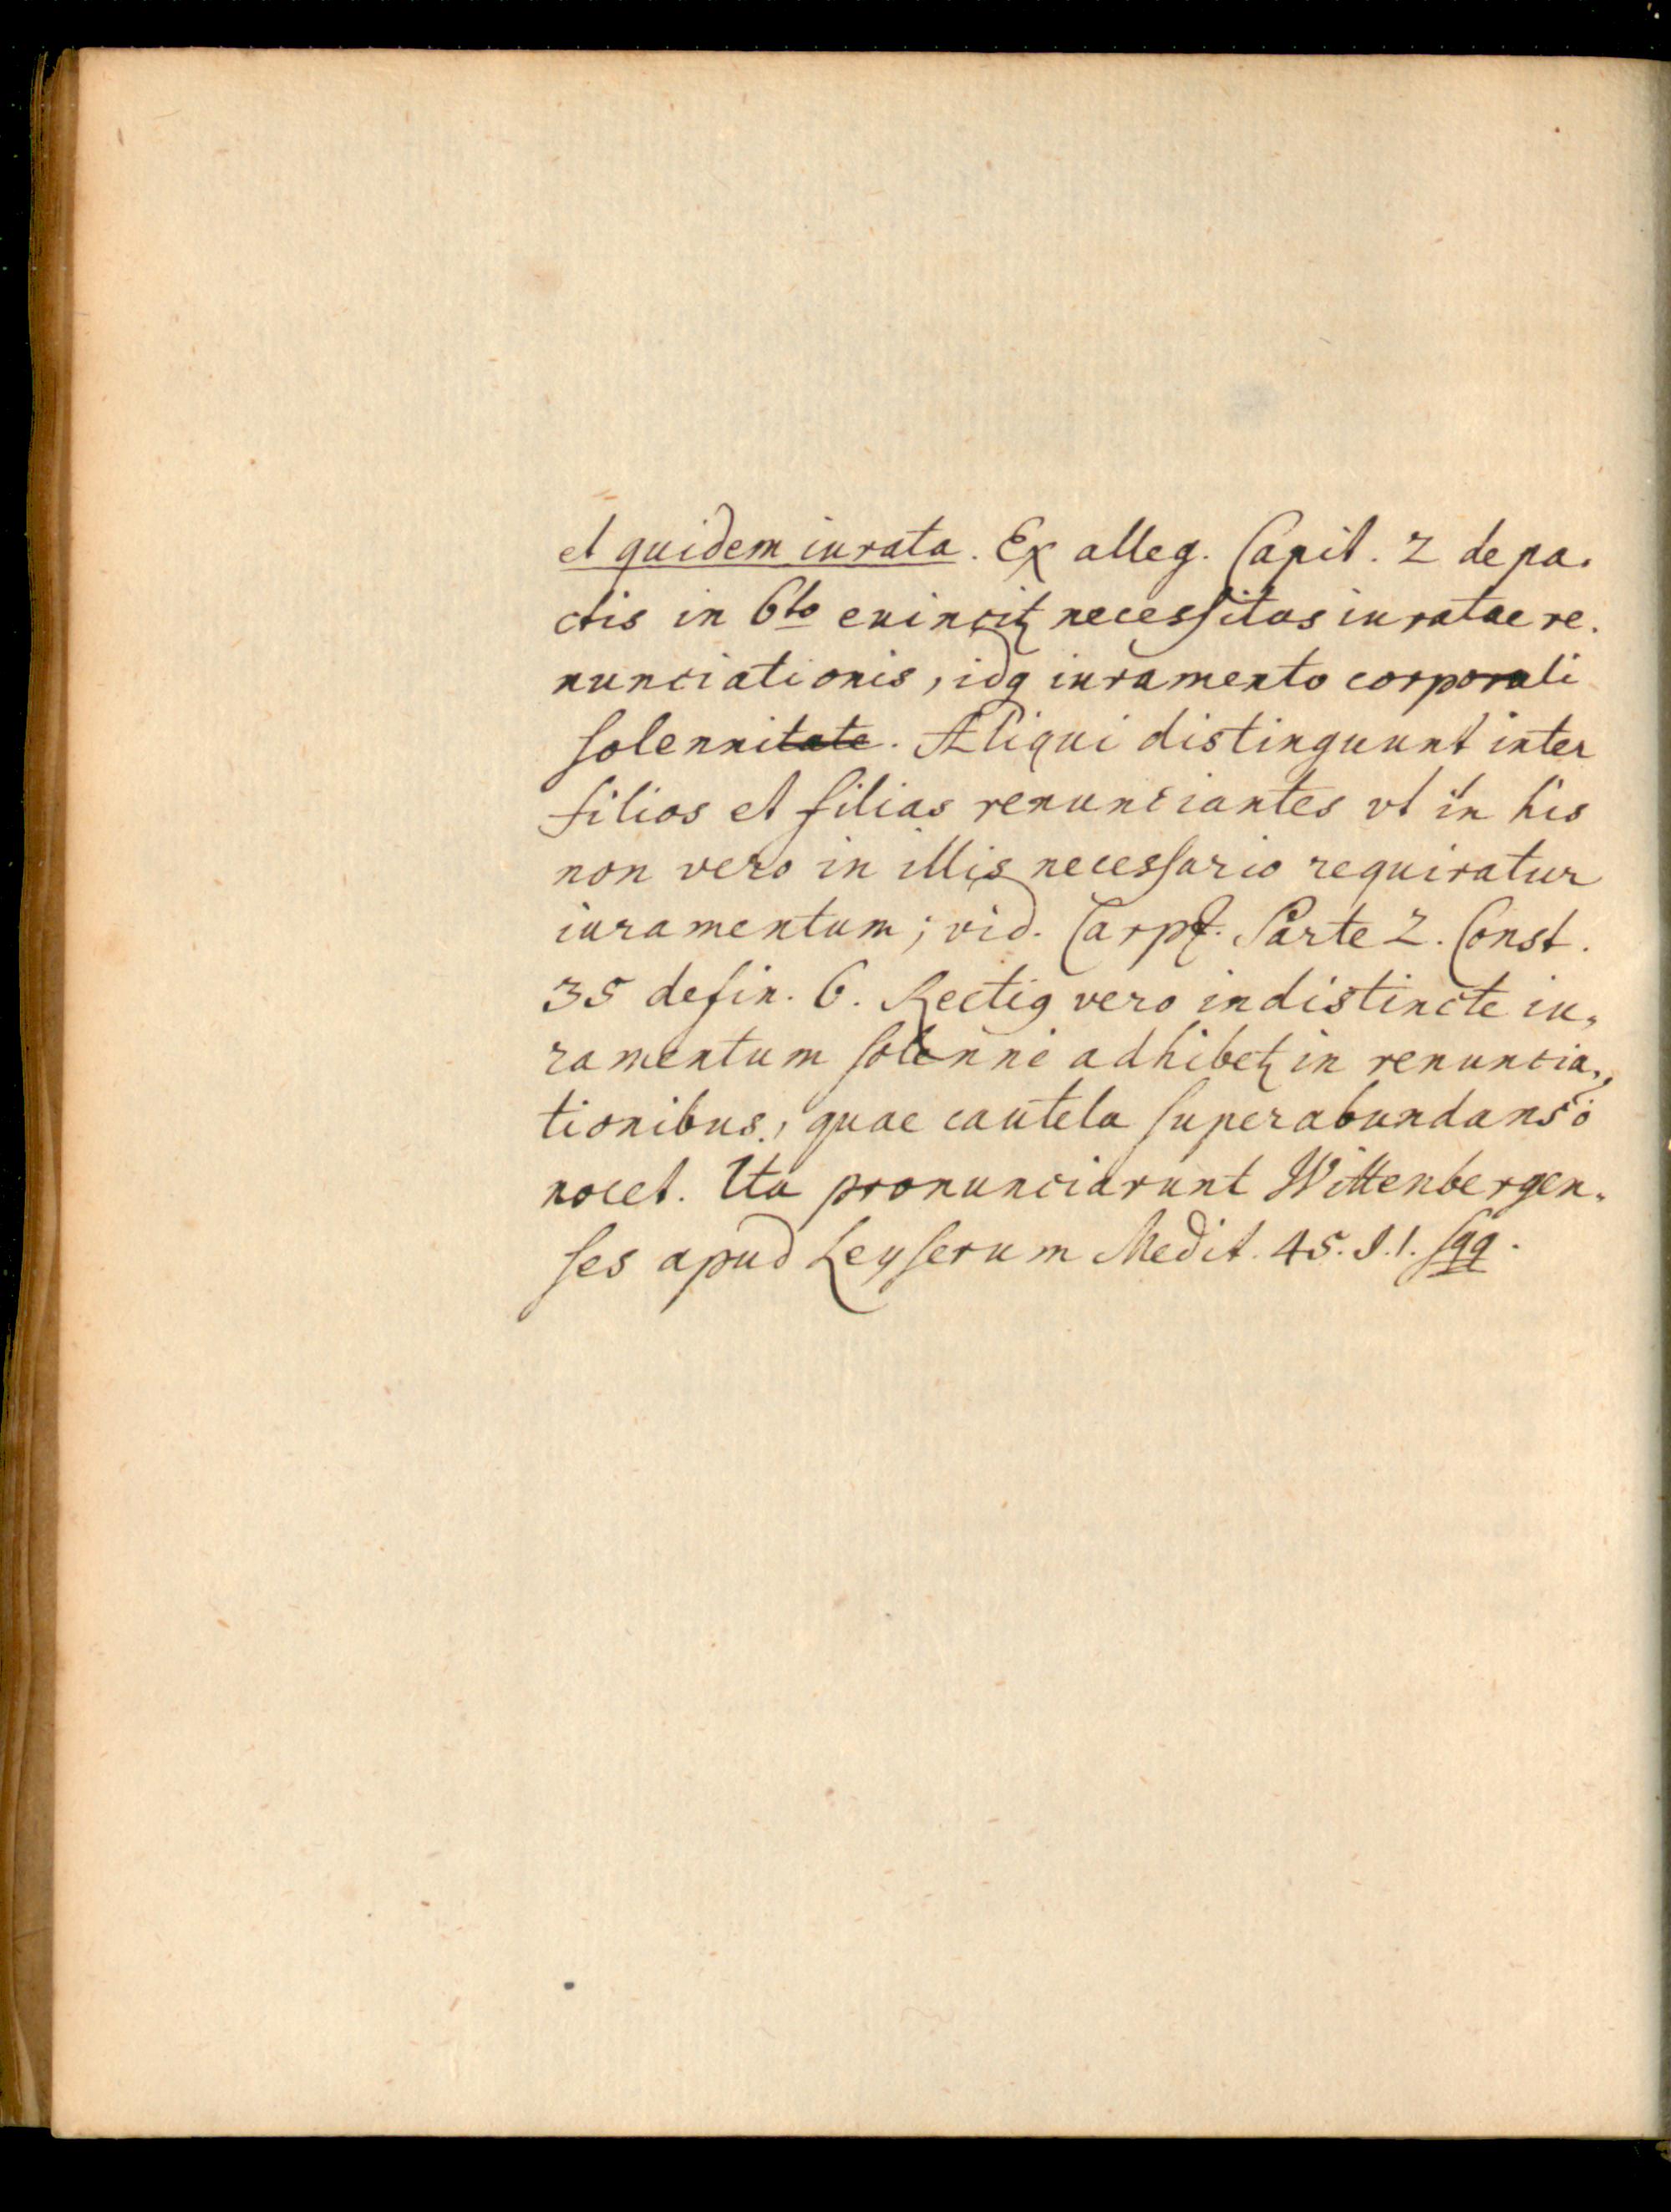 et quidem iurata. Ex alleg. Capit. 2 de pa-
ctis in 6to euincitꝛ necessitas iuratae re-
nunciationis, idq iuramento corporali
solennitate. Aliqui distinguunt inter
filios et filias renunciantes vt in his
non vero in illis necessario requiratur
iuramentum; vid. Carpz. Parte 2. Const.
35 defin. 6. Rectig vero indistincte iu-
ramentum solenne adhibetꝛ in renuncia-
tionibus, quae cautela superabundans ö
nocet. Ita pronunciarunt Wittenbergen-
ses apud Leyserum Medit. 45. §.1. sqq.